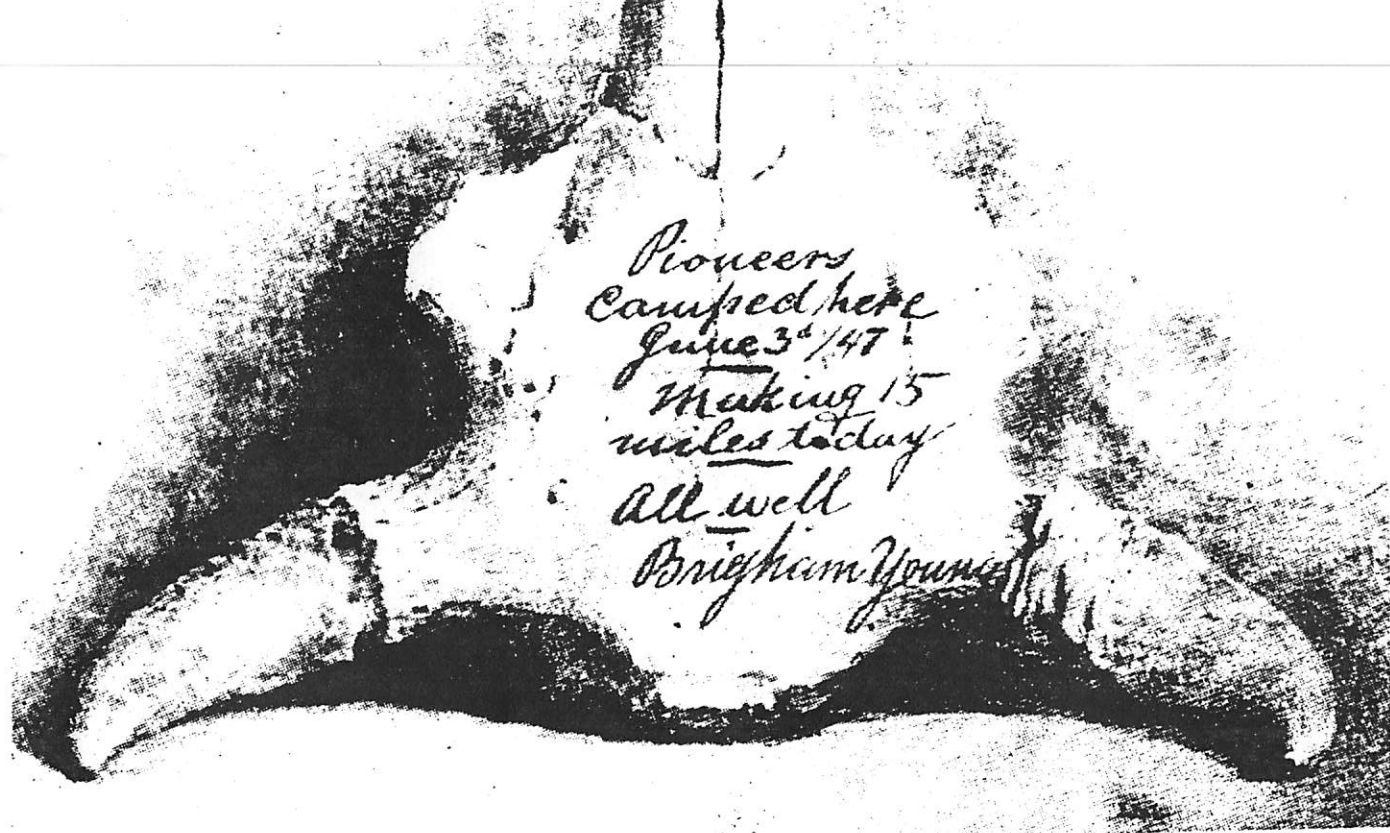 Pioneers
Camped here
June 3ᵈ/47
Making 15
miles today
All well
Brigham Young